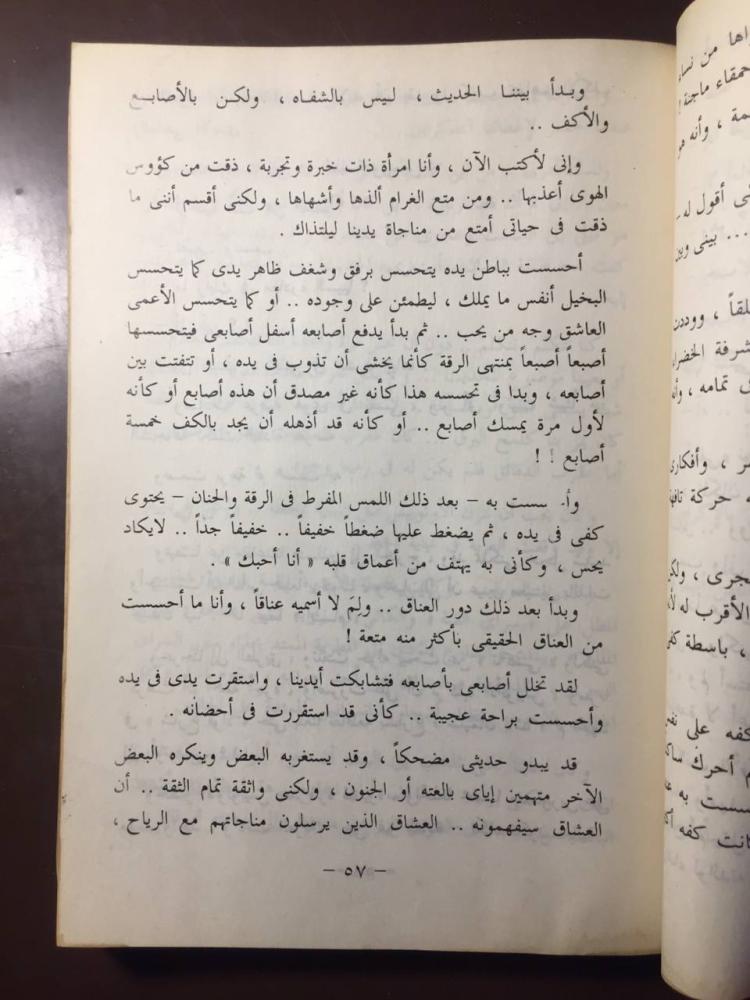 وبدأ بيننا الحديث ، ليس بالشفاه ، ولكن بالأصابع
والأكف ..
وإنى لأكتب الآن ، وأنا امرأة ذات خبرة وتجربة ، ذقت من كؤوس
الهوى أعذبها .. ومن متع الغرام ألذها وأشهاها ، ولكنى أقسم أننى ما
ذقت فى حياتى أمتع من مناجاة يدينا ليلتذاك .
أحسست بباطن يده يتحسس برفق وشغف ظاهر يدى كما يتحسس
البخيل أنفس ما يملك ، ليطمئن على وجوده .. أو كما يتحسس الأعمى
العاشق وجه من يحب .. ثم بدأ يدفع أصابعه أسفل أصابعى فيتحسسها
أصبعاً أصبعاً بمنتهى الرقة كأنما يخشى أن تذوب فى يده ، أو تتفتت بين
أصابعه ، وبدا فى تحسسه هذا كأنه غير مصدق أن هذه أصابع أو كأنه
لأول مرة يمسك أصابع .. أو كأنه قد أذهله أن يجد بالكف خمسة
أصابع ! !
وأ. سست به – بعد ذلك اللمس المفرط فى الرقة والحنان – يحتوى
كفى فى يده ، ثم يضغط عليها ضغطاً خفيفاً .. خفيفاً جداً .. لايكاد
يحس ، وكأنى به يهتف من أعماق قلبه « أنا أحبك » .
وبدأ بعد ذلك دور العناق .. ولِمَ لا أسميه عناقاً ، وأنا ما أحسست
من العناق الحقيقى بأكثر منه متعة !
لقد تخلل أصابعى بأصابعه فتشابكت أيدينا ، واستقرت يدى فى يده
وأحسست براحة عجيبة .. كأنى قد استقررت فى أحضانه .
قد يبدو حديثى مضحكاً ، وقد يستغربه البعض وينكره البعض
الآخر متهمين إياى بالعته أو الجنون ، ولكنى واثقة تمام الثقة .. أن
العشاق سيفهمونه .. العشاق الذين يرسلون مناجاتهم مع الرياح ،
– ٥٧ –
من نساء
حمقاء ماجنة
، وأنه هو
أقول له
... بينى وبين
، ووددت
الخضراء
تمامه ، وأنه
، وأفكارى
حركة تافهة
، ولكن
الأقرب له
، باسطة كفى
كفه على
أحرك
به
كانت كفه